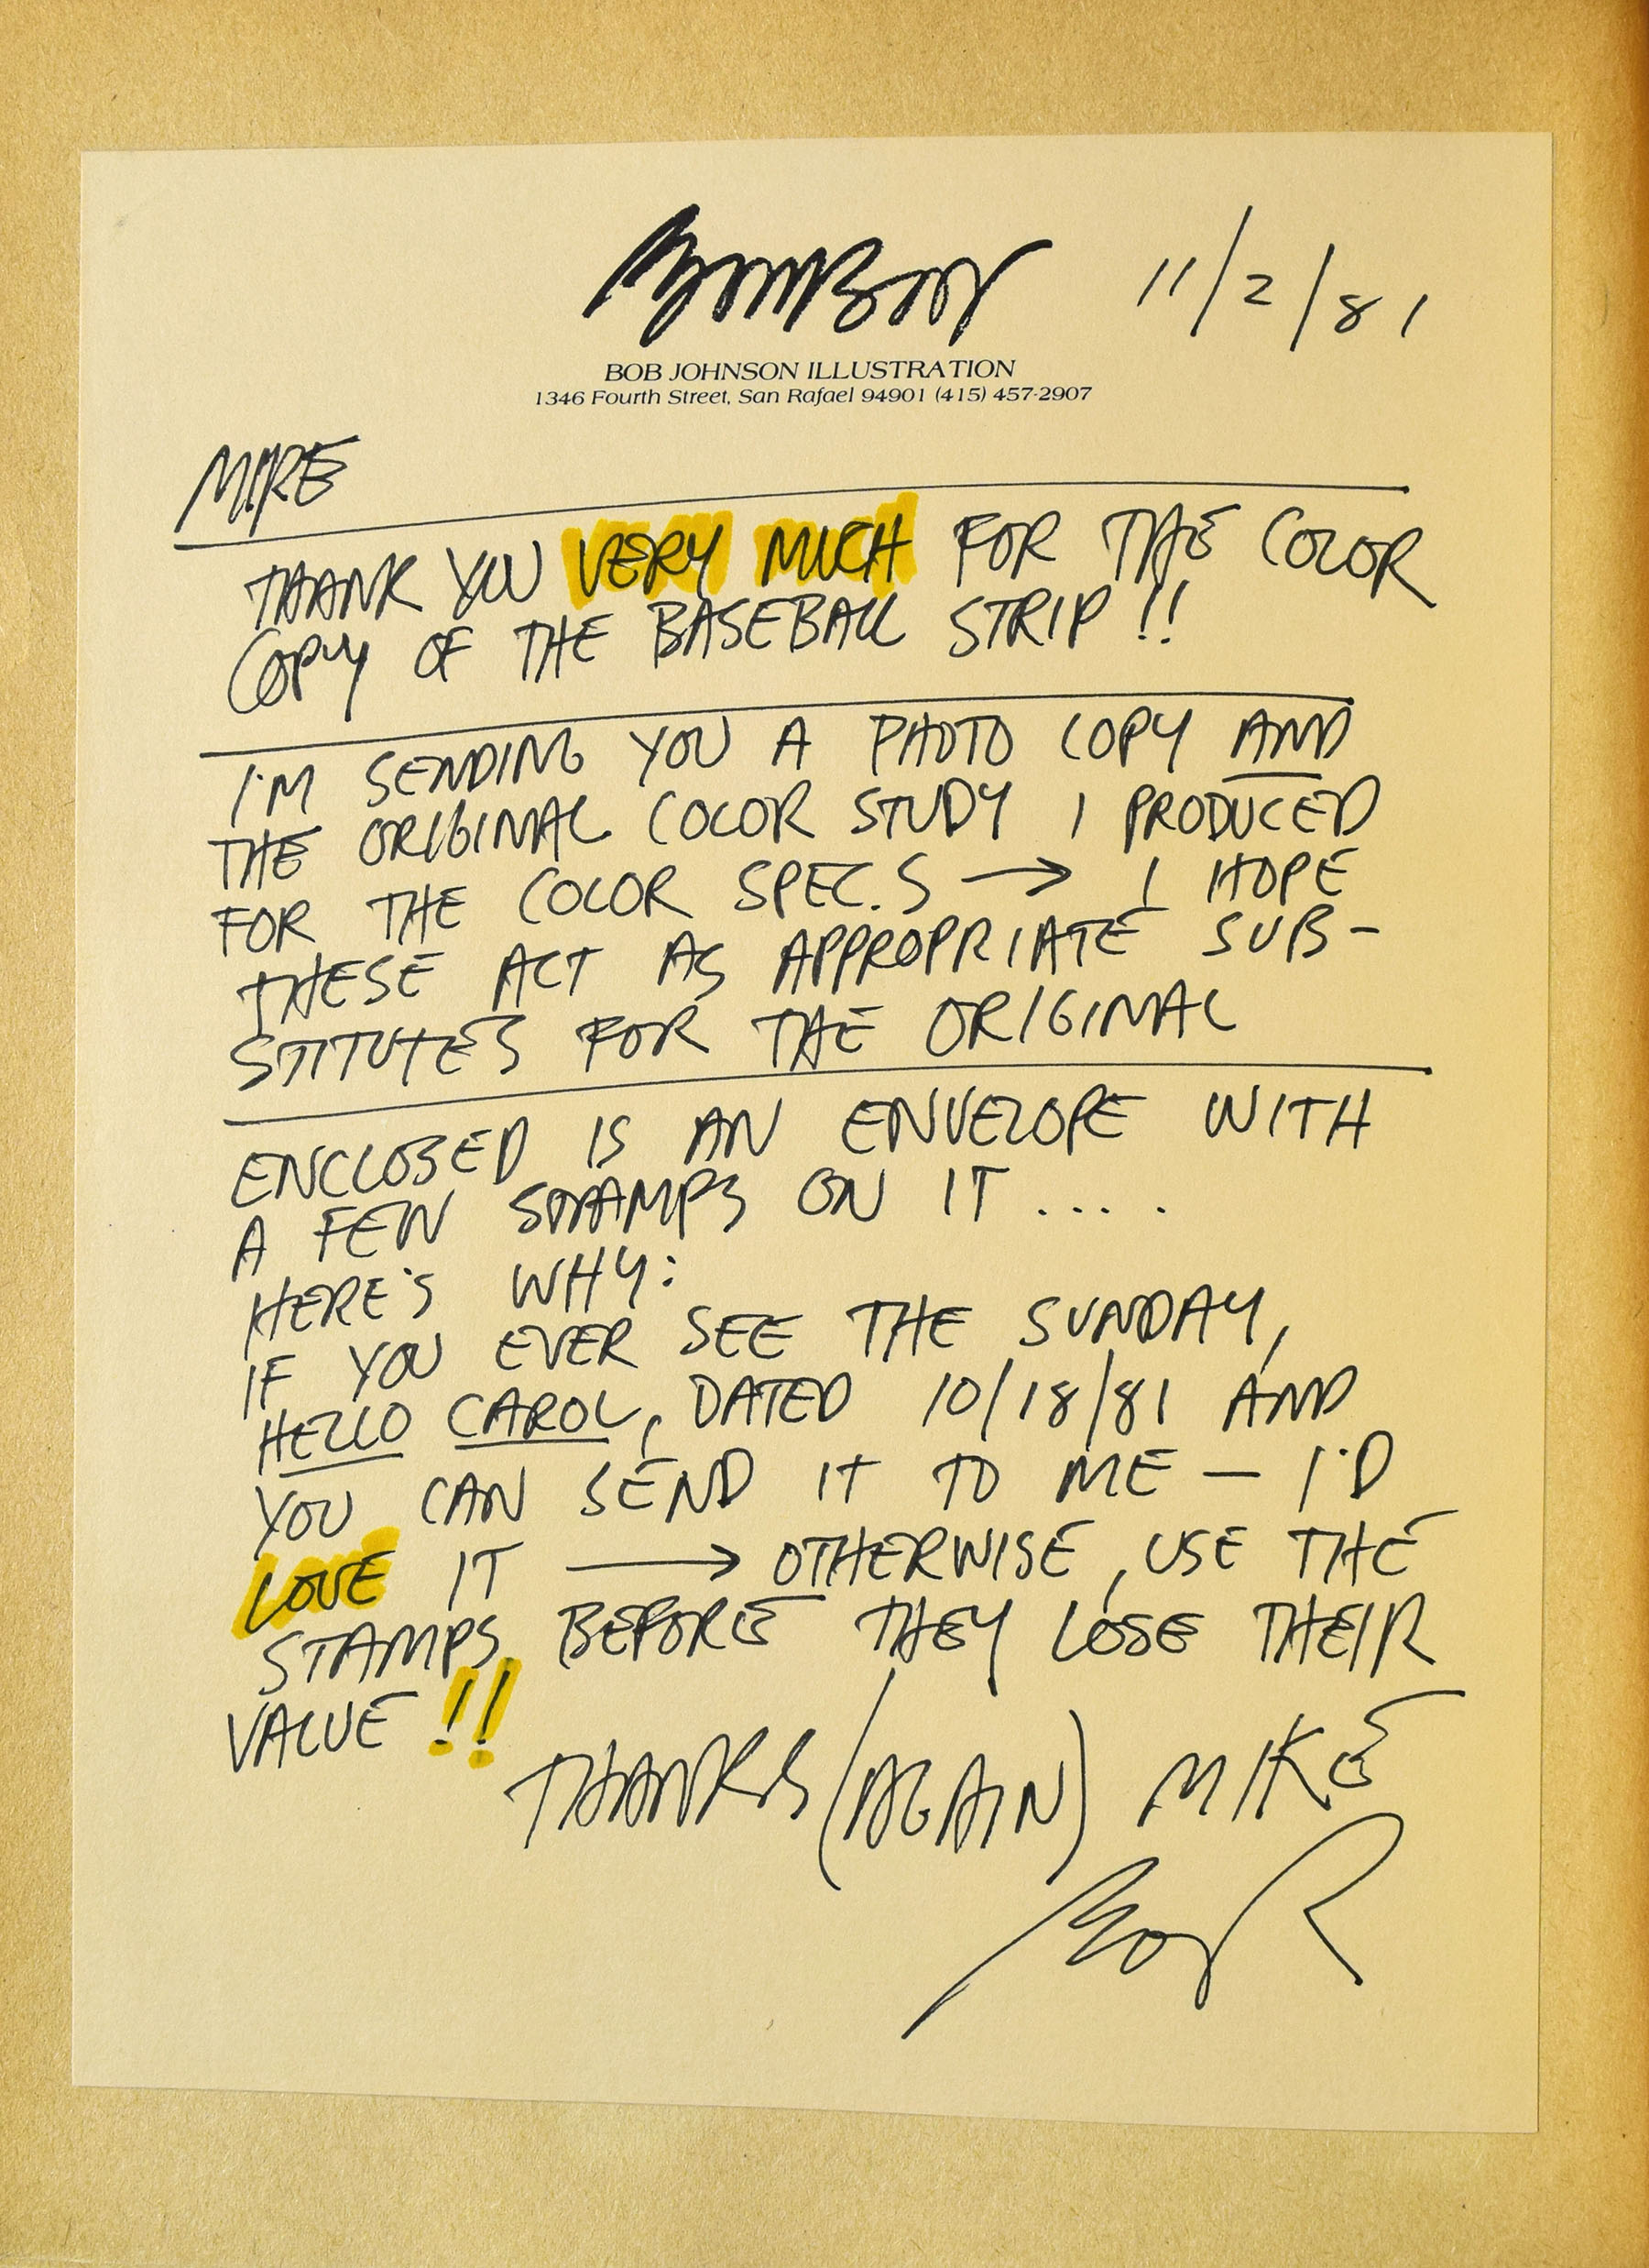 11/2/81
BOB JOHNSON ILLUSTRATION
1346 Fourth Street, San Rafael 94901 (415) 457-2907
MIKE
THANK YOU VERY MUCH FOR THE COLOR
COPY OF THE BASEBALL STRIP!!
I'M SENDING YOU A PHOTO COPY AND
THE ORIGINAL COLOR STUDY I PRODUCED
FOR THE COLOR SPEC.S → I HOPE
THESE ACT AS APPROPRIATE SUB-
STITUTES FOR THE ORIGINAL
ENCLOSED IS AN ENVELOPE WITH
A FEW STAMPS ON IT....
HERE'S WHY:
IF YOU EVER SEE THE SUNDAY,
HELLO CAROL, DATED 10/18/81 AND
YOU CAN SEND IT TO ME — I'D
LOVE IT → OTHERWISE, USE THE
STAMPS BEFORE THEY LOSE THEIR
VALUE!!
THANKS (AGAIN) MIKE